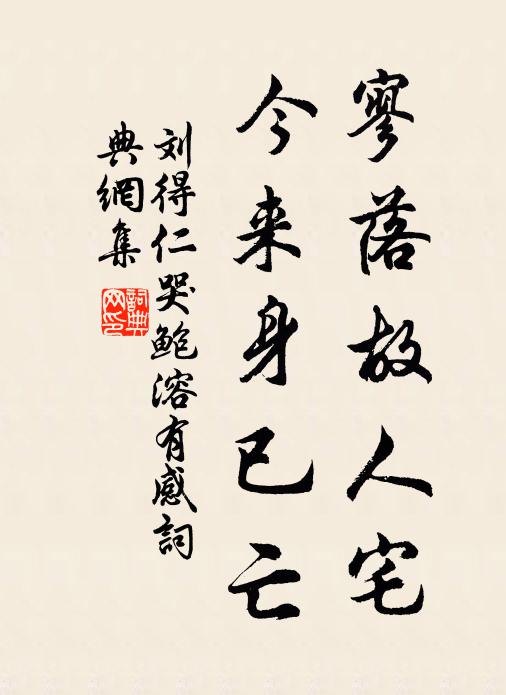 寥落故人宅
今来身已亡
刘得仁哭鲍溶有感词
典網集
詞典
网印